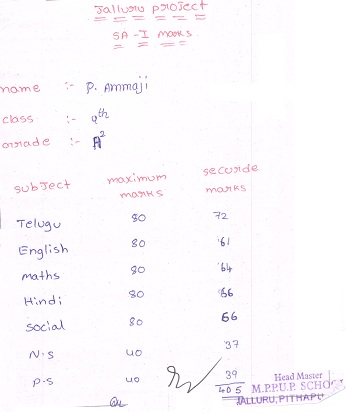 Jalluru project
SA - I marks
name :- P. Ammaji
class :- 9th
grade :- A2
subject maximum marks secured marks
Telugu 80 72
English 80 61
maths 80 64
Hindi 80 66
social 80 66
N.S 40 37
P-S 40 39
405
Head Master
M.P.P.U.P. SCHO
JALLURU, PITHAPU